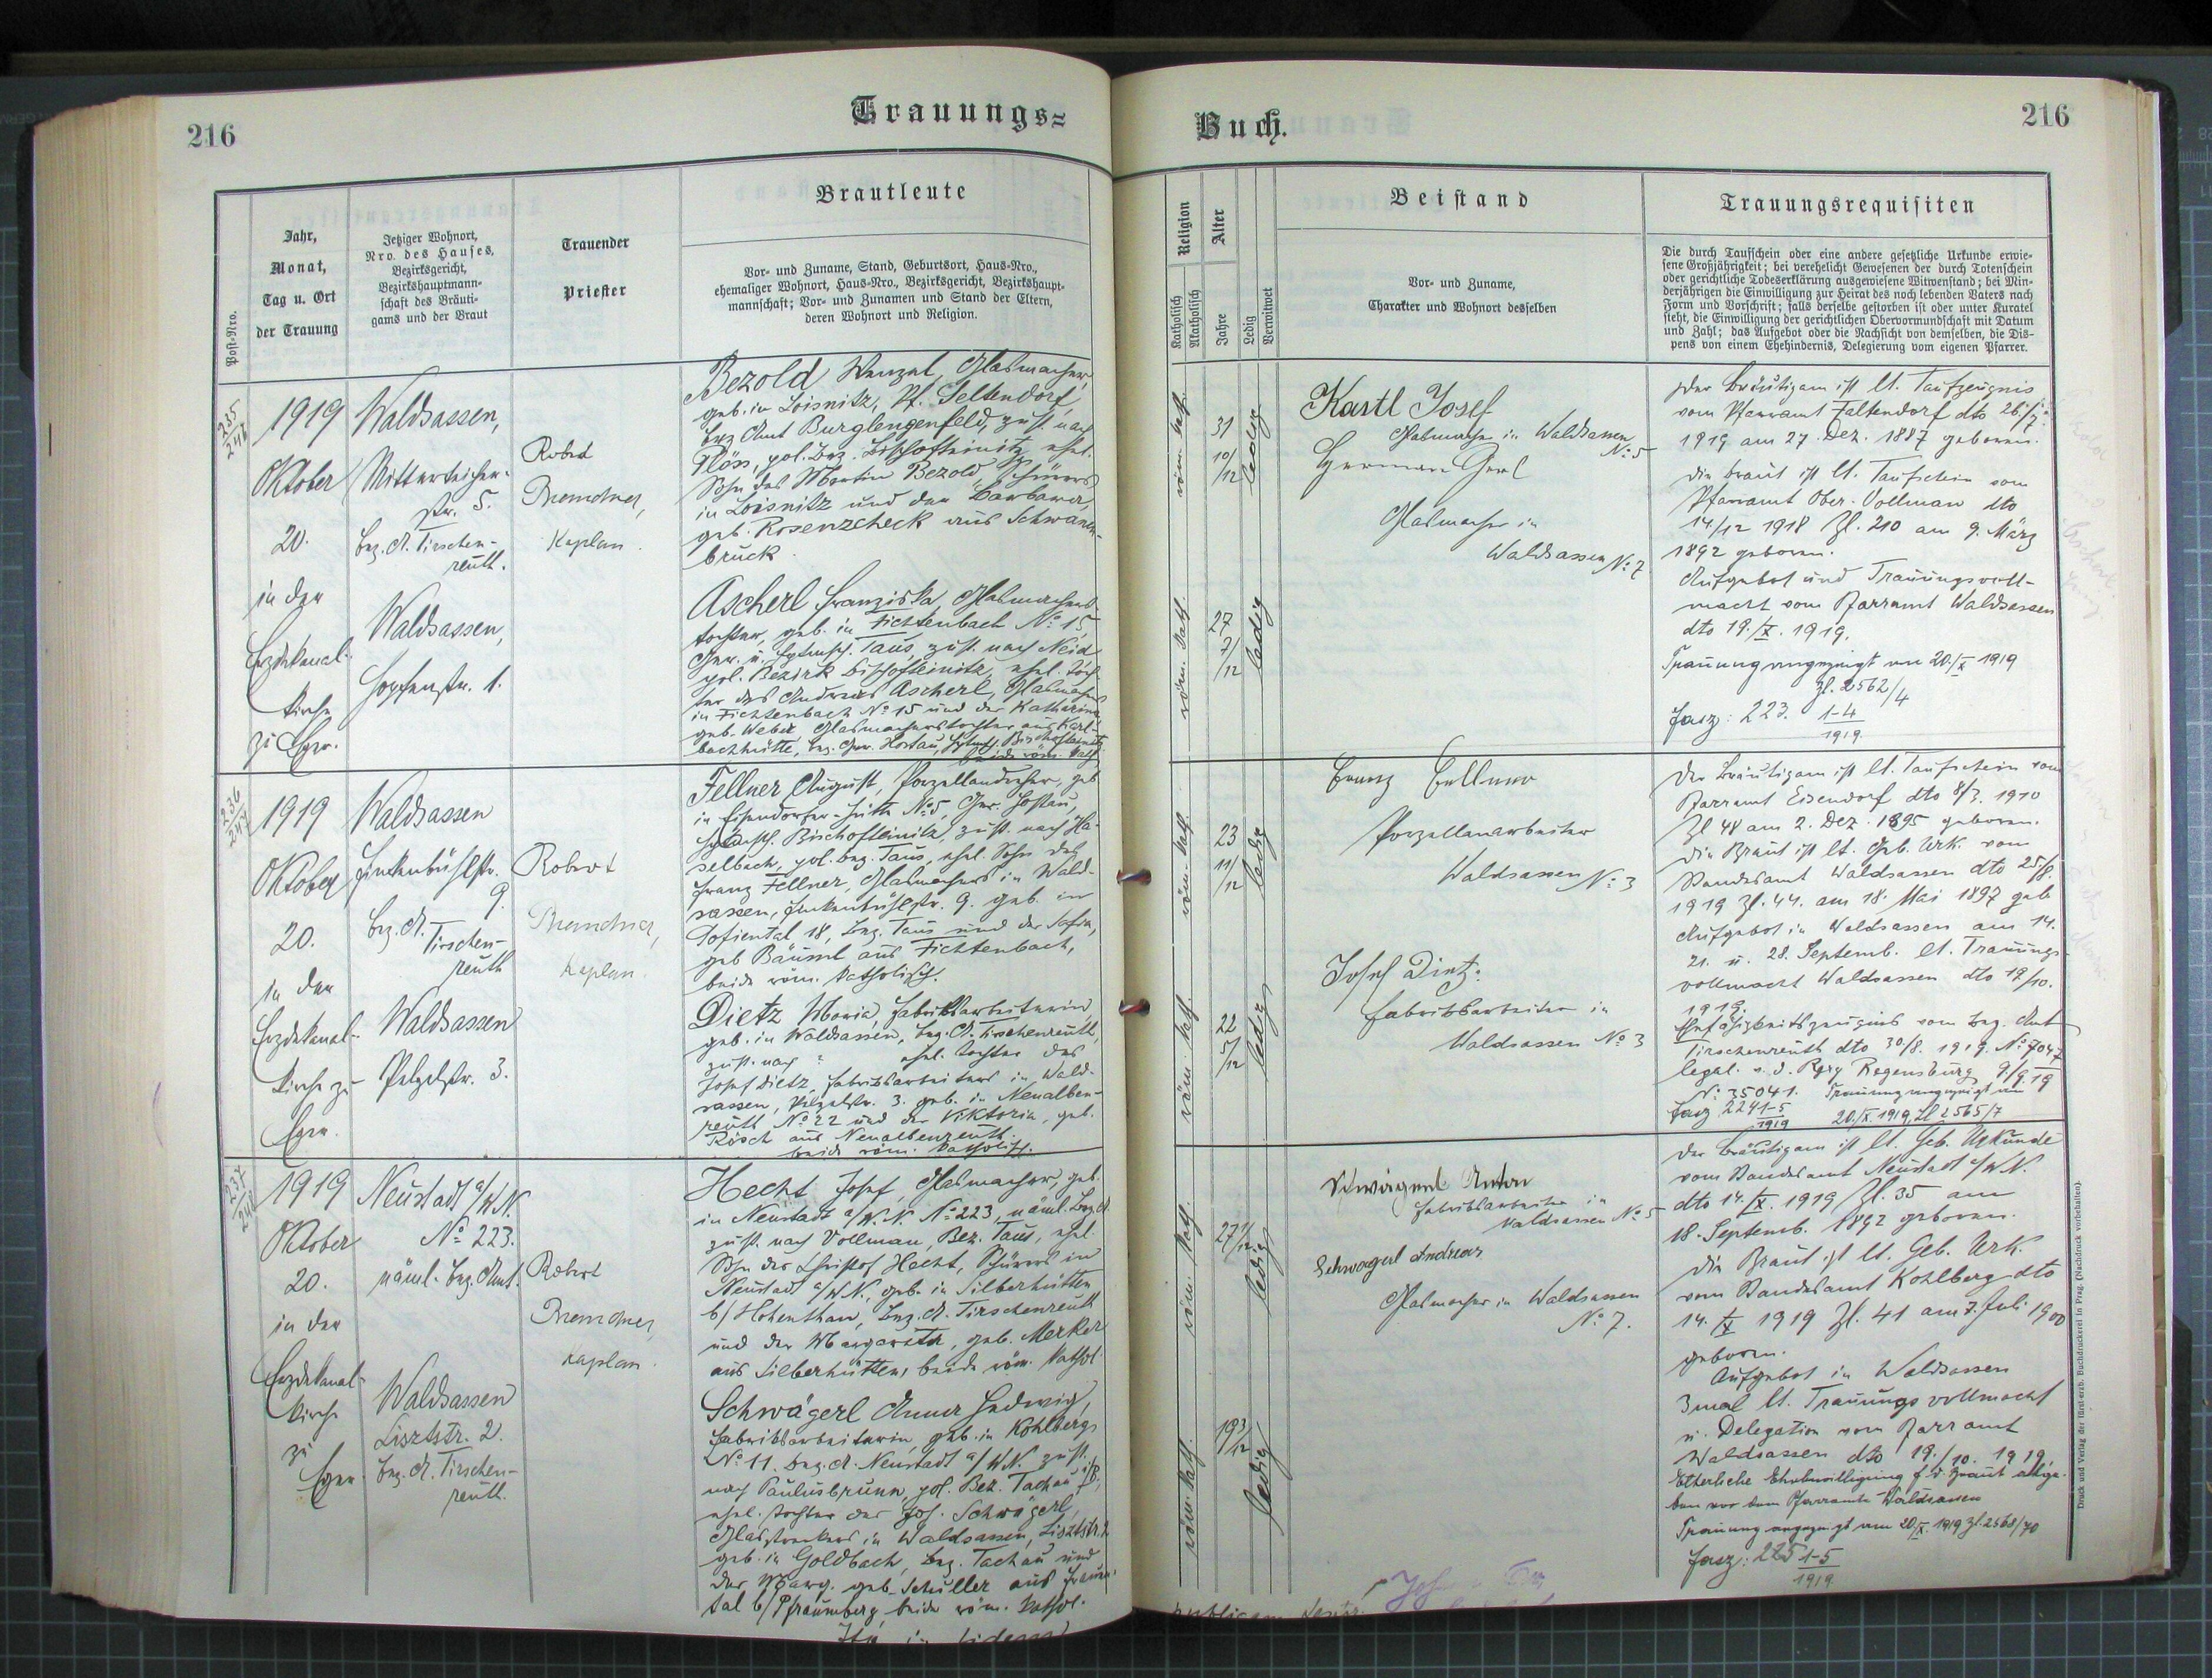 216
Trauungs=
Post-Nro.
Jahr,
Monat,
Tag u. Ort
der Trauung
Jetziger Wohnort,
Nro. des Hauses,
Bezirksgericht,
Bezirkshauptmann-
schaft des Bräuti-
gams und der Braut
Trauender
Priester
Brautleute
Vor- und Zuname, Stand, Geburtsort, Haus-Nro.,
ehemaliger Wohnort, Haus-Nro., Bezirksgericht, Bezirkshaupt-
mannschaft; Vor- und Zunamen und Stand der Eltern,
deren Wohnort und Religion.
235
1919
Oktober
20.
in der
Erzdekanal-
kirche
zu Eger.
Waldsassen,
Mitterteicher-
str. 5.
Bez. A. Tirschen-
reuth.
Waldsassen,
Hopfenstr. 1.
Robert
Kaplan.
Bezold Wenzel, Glasmacher,
geb. in Loisnitz, Pf.
Bez Amt Burglengenfeld, zust. nach
Plöss, pol. Bez. Bischofteinitz, ehel.
Sohn des Martin Bezold, Schürers
in Loisnitz und der Barbara,
geb. Rosenzcheck aus Schwarz-
bruck.
Ascherl Franziska, Glasmachers-
tochter, geb. in Fichtenbach No 15,
Taus, zust. nach Neid
pol. Bezirk Bischofteinitz, ehel. Toch-
ter des Andreas Ascherl, Glasmachers
in Fichtenbach No 15 und der Katharina
geb. Weber, Glasmacherstochter aus Karl-
bachhütte, Hostau, Bischofteinitz
beide röm. kath.
236
1919
Oktober
20.
in der
Erzdekanal-
kirche zu
Eger.
Waldsassen
9.
Bez. A.
Tirschen-
reuth
Waldsassen
3.
Robert
Kaplan.
Fellner August, Porzellandreher, geb
in Eisendorfer-Hütte No 5, Ger. Hostau,
Bischofteinitz, zust. nach Ha-
selbach, pol. Bez. Taus, ehel. Sohn des
Franz Fellner, Glasmachers in Wald-
sassen, 9. geb. in
Sofiental 18, Bez. Taus und der Sofia,
geb Bäuml aus Fichtenbach,
beide röm. katholisch.
Dietz Maria, Fabriksarbeiterin,
geb. in Waldsassen, Bez. A. Tirschenreuth,
zust. nach ? ehel. Tochter des
Josef Dietz, Fabriksarbeiters in Wald-
sassen, 3. geb. in Neualben-
reuth No 22 und der Viktoria, geb.
Rösch aus Neualbenreuth
beide röm. katholisch.
237
1919
Oktober
20.
in der
Erzdekanal-
kirche
zu
Eger.
Neustadt a/W.N.
No 223.
näml. Bez. Amt.
Waldsassen
Lisztstr. 2.
Bez. A. Tirschen-
reuth.
Robert
Kaplan.
Hecht Josef, Glasmacher, geb.
in Neustadt a/W.N. No 223, näml. Bez. A.
zust. nach Vollmau, Bez. Taus, ehel.
Sohn des Christof Hecht, Schürers in
Neustadt a/W.N., geb. in Silberhütten
b/ Hohenthan, Bez. A. Tirschenreuth
und der Margareta, geb. Merker
aus Silberhütten, beide röm. kathol.
Schwägerl Anna Hedwig,
Fabriksarbeiterin, geb. in Kohlberg
No 11. Bez. A. Neustadt a/W.N. zust.
nach Paulusbrunn, pol. Bez. Tachau i/B,
ehel. Tochter des Jos. Schwägerl,
Glasstreckers in Waldsassen, Lisztstr. 2
geb. in Goldbach, Bez. Tachau und
der Marg. geb. Schuller aus Frauen-
tal b/Pfraumberg, beide röm. kathol.
Buch.
216
Religion
Katholisch
Akatholisch
Alter
Jahre
Ledig
Verwitwet
Beistand
Vor- und Zuname,
Charakter und Wohnort desselben
Trauungsrequisiten
Die durch Taufschein oder eine andere gesetzliche Urkunde erwie-
sene Großjährigkeit; bei verehelicht Gewesenen der durch Totenschein
oder gerichtliche Todeserklärung ausgewiesene Witwenstand; bei Min-
derjährigen die Einwilligung zur Heirat des noch lebenden Vaters nach
Form und Vorschrift; falls derselbe gestorben ist oder unter Kuratel
steht, die Einwilligung der gerichtlichen Obervormundschaft mit Datum
und Zahl; das Aufgebot oder die Nachsicht von demselben, die Dis-
pens von einem Ehehindernis, Delegierung vom eigenen Pfarrer.
röm. kath.
31
10/12
ledig
röm. kath.
27
7/12
ledig
Kastl Josef
Glasmacher in Waldsassen
No 5
Hermann
Glasmacher in
Waldsassen No 7
Der Bräutigam ist lt. Taufzeugnis
vom Pfarramt
1919 am 27. Dez. 1887 geboren.
Die Braut ist lt. Taufschein vom
Pfarramt Ober-Vollmau dto
14/12 1918 Zl. 210 am 9. März
1892 geboren.
Aufgebot und Trauungsvoll-
macht vom Pfarramt Waldsassen
dto 19./X. 1919.
Trauung angezeigt am 20./X 1919
Zl. 2562/4
Fasz: 223. 1-4
1919.
röm. kath.
23
11/12
ledig
röm. kath.
22
5/12
ledig
Franz Fellner
Porzellanarbeiter
Waldsassen No 3
Josef Dietz.
Fabriksarbeiter in
Waldsassen No 3
Der Bräutigam ist lt. Taufschein vom
Pfarramt Eisendorf dto 8/3. 1910
Zl 48 am 2. Dez. 1895 geboren.
Die Braut ist lt. Geb. Urk. vom
Standesamt Waldsassen dto 25/8.
1919 Zl. 44. am 18. Mai 1897 geb
Aufgebot in Waldsassen am 14.
21. u. 28. Septemb. lt. Trauungs-
vollmacht Waldsassen dto 19/10.
1919.
Ehefähigkeitszeugnis vom Bez. Amt
Tirschenreuth dto 30/8. 1919. No 7047
legal. v. d. Regensburg 9/9. 19
No 35041. Trauung angezeigt am
Fasz 224 1-5
1919
20./X. 1919, Zl 2565/7
röm. kath.
27 1/12
ledig
röm. kath.
19 3/12
ledig
Schwägerl Anton
Fabriksarbeiter in
Waldsassen No 5
Schwägerl Andreas
Glasmacher in Waldsassen
No 7.
Der Bräutigam ist lt. Geb. Urkunde
vom Standesamt Neustadt a/W.N.
dto 14. IX. 1919 Zl. 35 am
18. Septemb. 1892 geboren.
Die Braut ist lt. Geb. Urk.
vom Standesamt Kohlberg dto
14. 1919 Zl. 41 am 7. Juli 1900
geboren.
Aufgebot in Waldsassen
3mal lt. Trauungsvollmacht
u. Delegation vom Pfarramt
Waldsassen dto 19./10. 1919,
Elterliche Ehebewilligung f. d. Braut abge-
ben vor dem Pfarramte Waldsassen
Trauung angezeigt am 20./X. 1919 Zl. 2568/70
Fasz: 225 1-5
1919.
Druck und Verlag der fürst-erzb. Buchdruckerei in Prag. (Nachdruck vorbehalten).